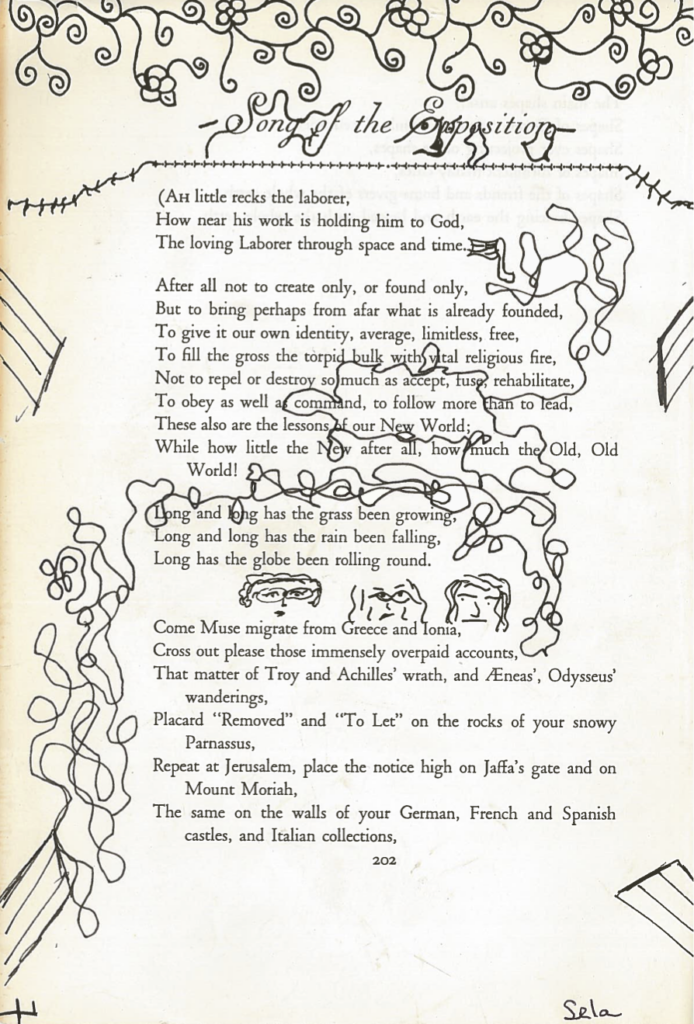 Song of the Exposition
(AH little recks the laborer,
How near his work is holding him to God,
The loving Laborer through space and time.
After all not to create only, or found only,
But to bring perhaps from afar what is already founded,
To give it our own identity, average, limitless, free,
To fill the gross the torpid bulk with vital religious fire,
Not to repel or destroy so much as accept, fuse, rehabilitate,
To obey as well as command, to follow more than to lead,
These also are the lessons of our New World;
While how little the New after all, how much the Old, Old
World!
Long and long has the grass been growing,
Long and long has the rain been falling,
Long has the globe been rolling round.
Come Muse migrate from Greece and Ionia,
Cross out please those immensely overpaid accounts,
That matter of Troy and Achilles' wrath, and Æneas', Odysseus'
wanderings,
Placard "Removed" and "To Let" on the rocks of your snowy
Parnassus,
Repeat at Jerusalem, place the notice high on Jaffa's gate and on
Mount Moriah,
The same on the walls of your German, French and Spanish
castles, and Italian collections,
202
Sela